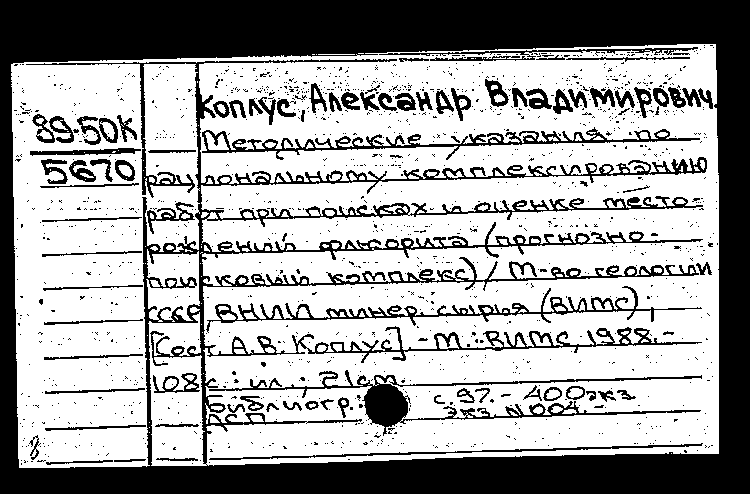 Коплус, Александр Владимирович.
89-50К
5670
Методические указания по
рациональному комплексированию
работ при поисках и оценке место-
рождений флюорита (прогнозно-
поисковый комплекс) / М-во геологии
СССР, ВНИИ минер. сырья (ВИМС);
[Сост. А.В. Коплус]. - М.: ВИМС, 1988. -
108 с.: ил.; 21см.
Библиогр.: с. 97. - 400экз.
ДСП. Экз. N 004. -